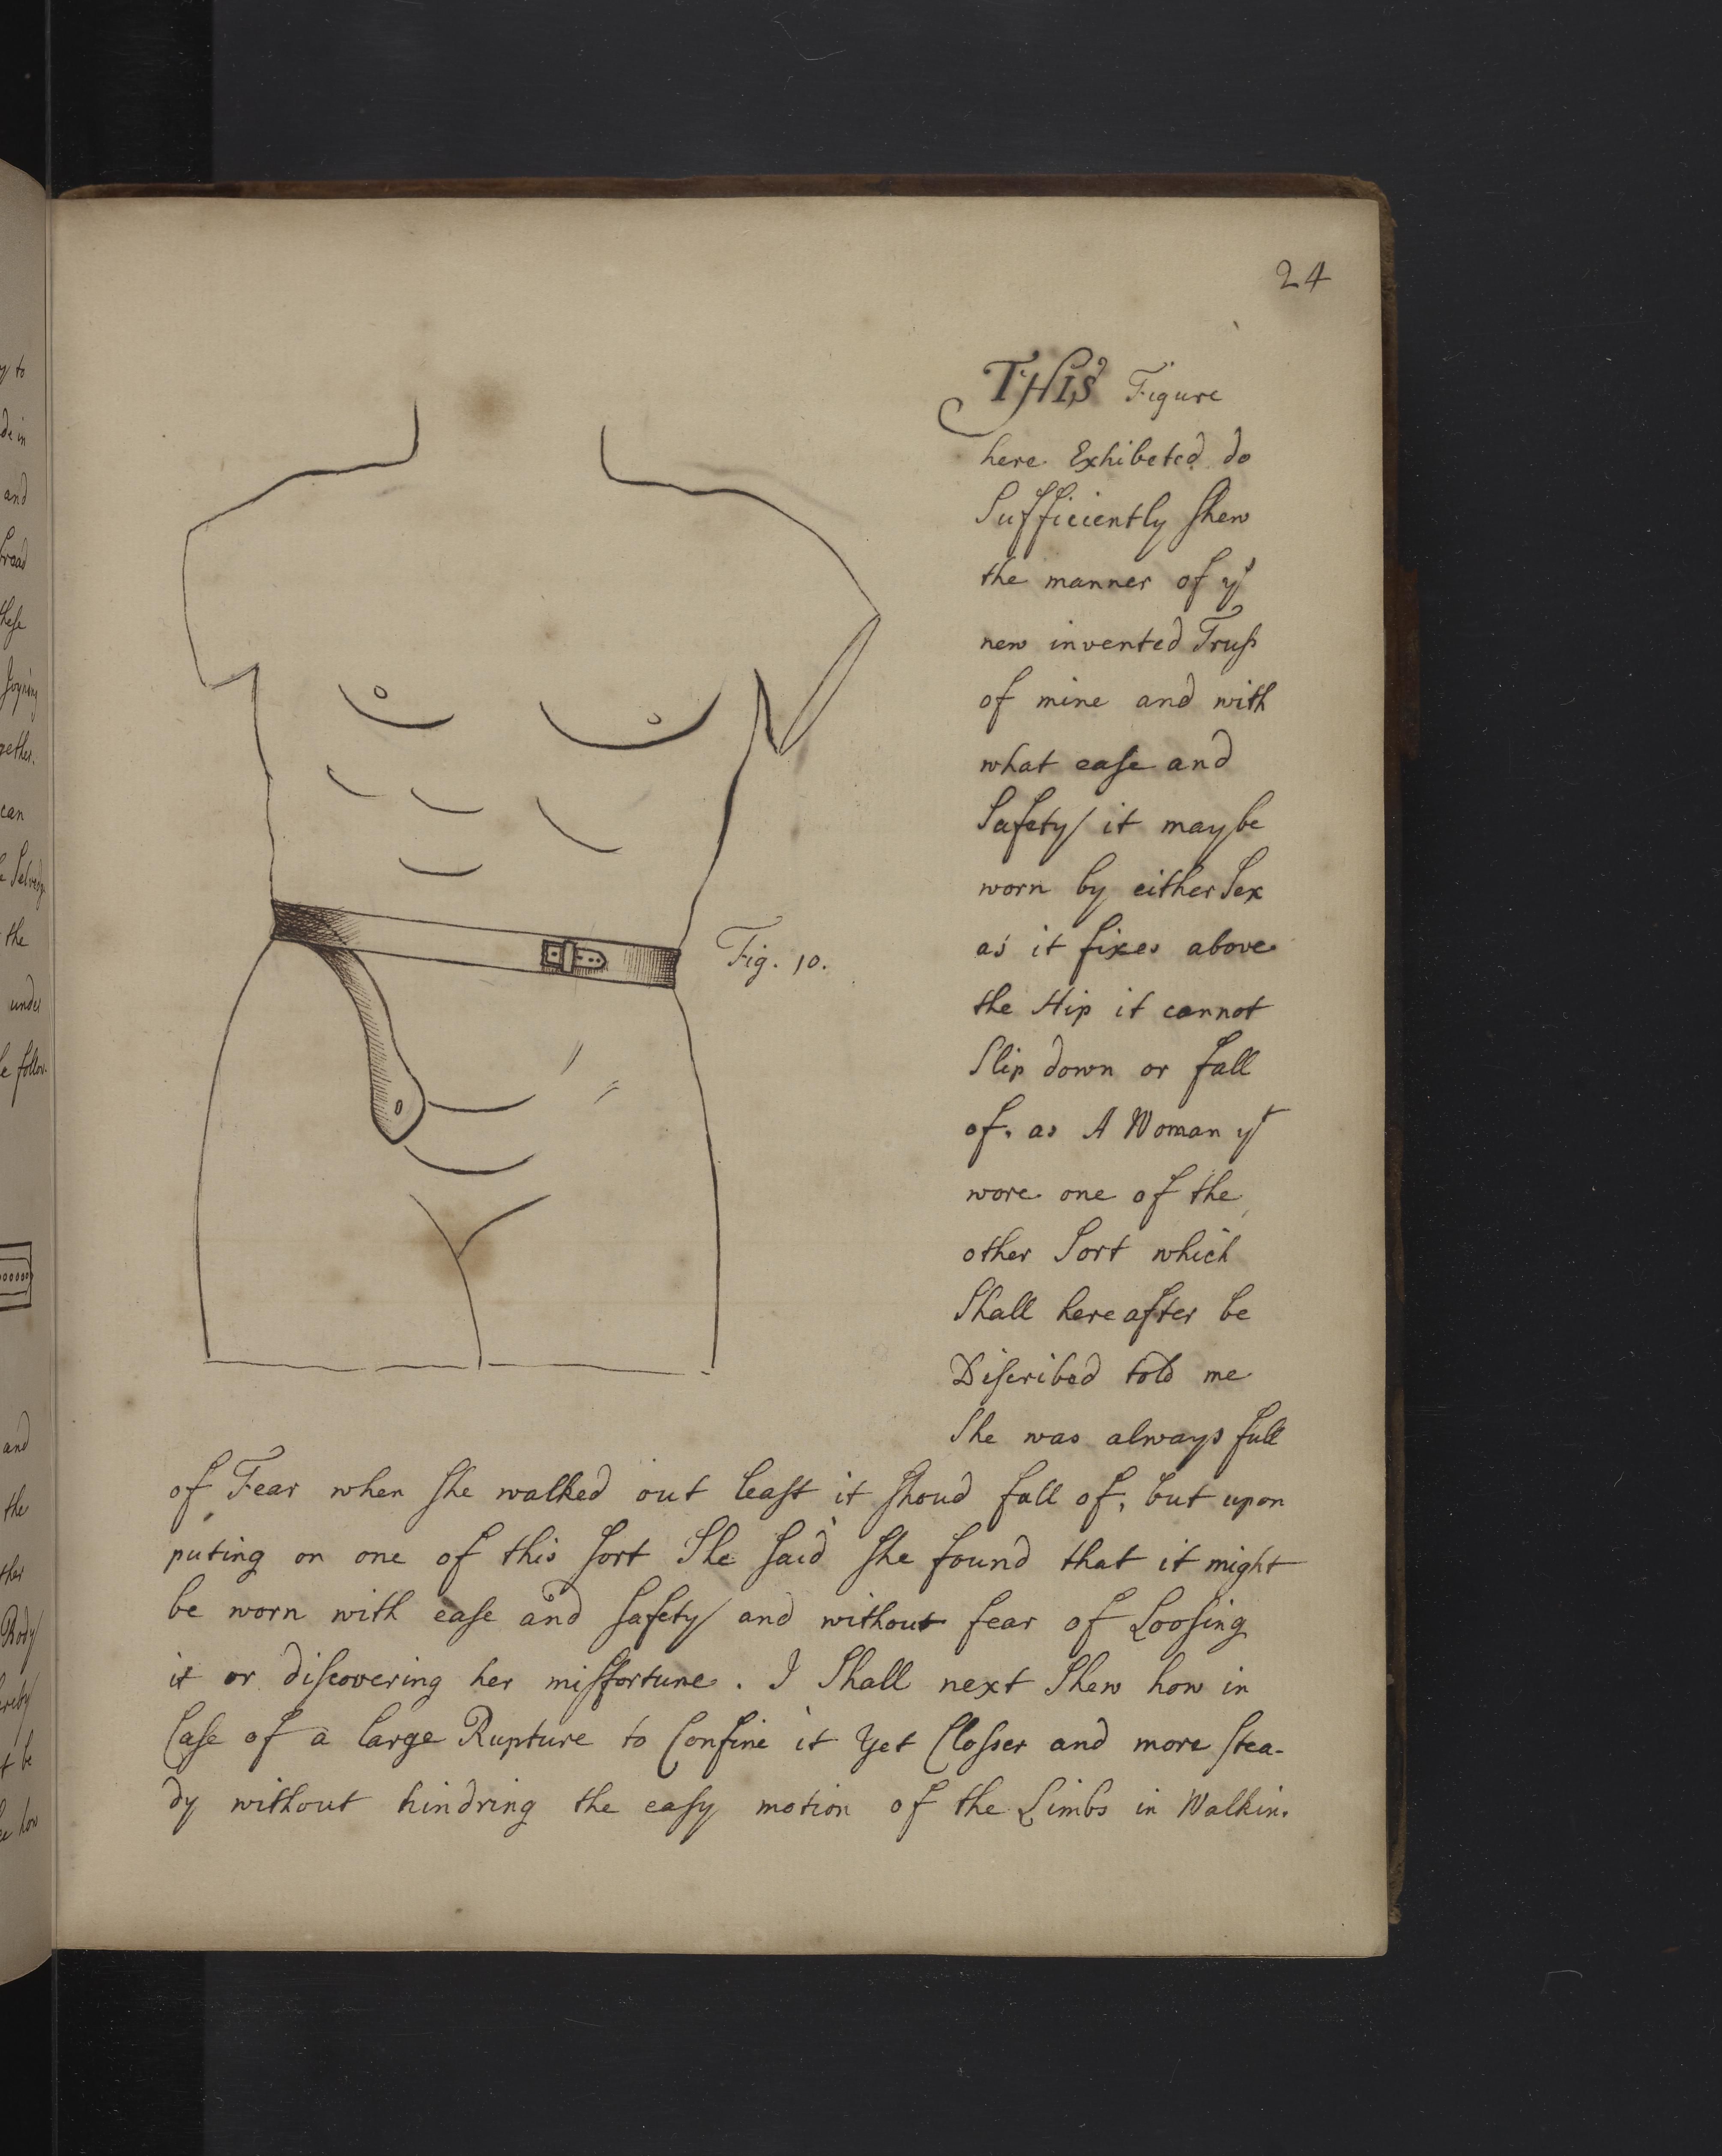 24
THIS Figure
here Exhibeted do
Sufficiently shew
the manner of ys
new invented Truss
of mine and with
what ease and
Safety it may be
worn by either Sex
as it fixes above
the Hip it cannot
Slip down or fall
of. as A Woman yt
wore one of the
other Sort which
Shall hereafter be
Discribed told me
She was always full
of Fear when she walked out least it shoud fall of, but upon
puting on one of this sort She said she found that it might
be worn with ease and safety and without fear of Loosing
it or discovering her missfortune. I Shall next Shew how in
Case of a large Rupture to Confine it Yet Closser and more stea-
dy without hindring the easy motion of the Limbs in Walkin.
Fig. 10.
y to
de in
and
broad
these
Joyning
gether.
can
Selvedg
the
under
e follow-
and
the
ther
Body
hereby
t be
how